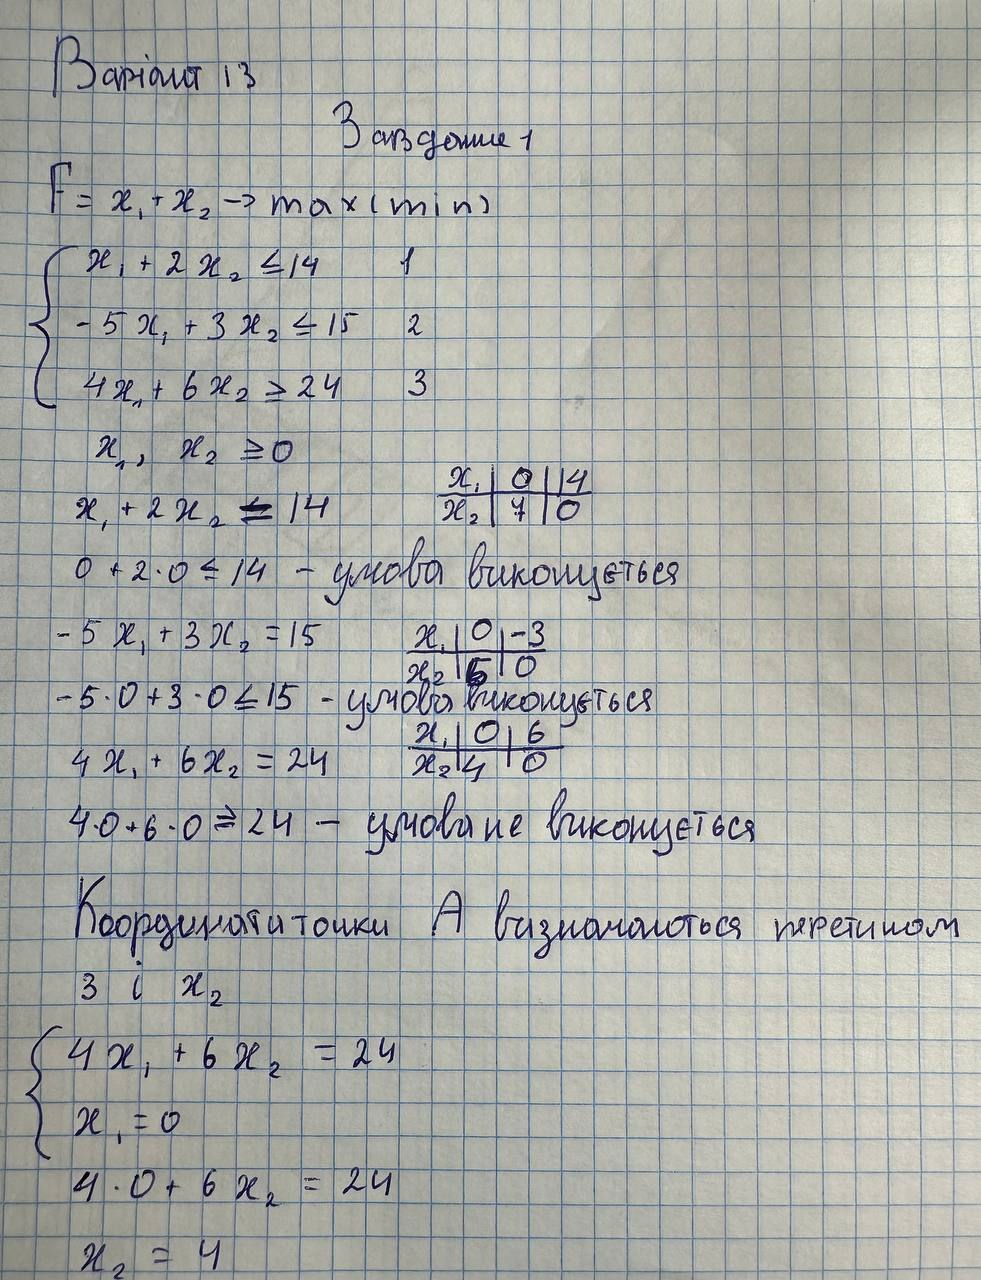 Варіант 13
Завдання 1
F = x₁ + x₂ -> max(min)
x₁ + 2x₂ ≤ 14 1
-5x₁ + 3x₂ ≤ 15 2
4x₁ + 6x₂ ≥ 24 3
x₁, x₂ ≥ 0
x₁ | 0 | 14
x₁ + 2x₂ = 14 x₂ | 7 | 0
0 + 2·0 ≤ 14 - умова виконується
-5x₁ + 3x₂ = 15 x₁ | 0 | -3
x₂ | 5 | 0
-5·0 + 3·0 ≤ 15 - умова виконується
x₁ | 0 | 6
4x₁ + 6x₂ = 24 x₂ | 4 | 0
4·0 + 6·0 ≥ 24 - умова не виконується
Координати точки А визначаються перетином
3 і x₂
4x₁ + 6x₂ = 24
x₁ = 0
4·0 + 6x₂ = 24
x₂ = 4